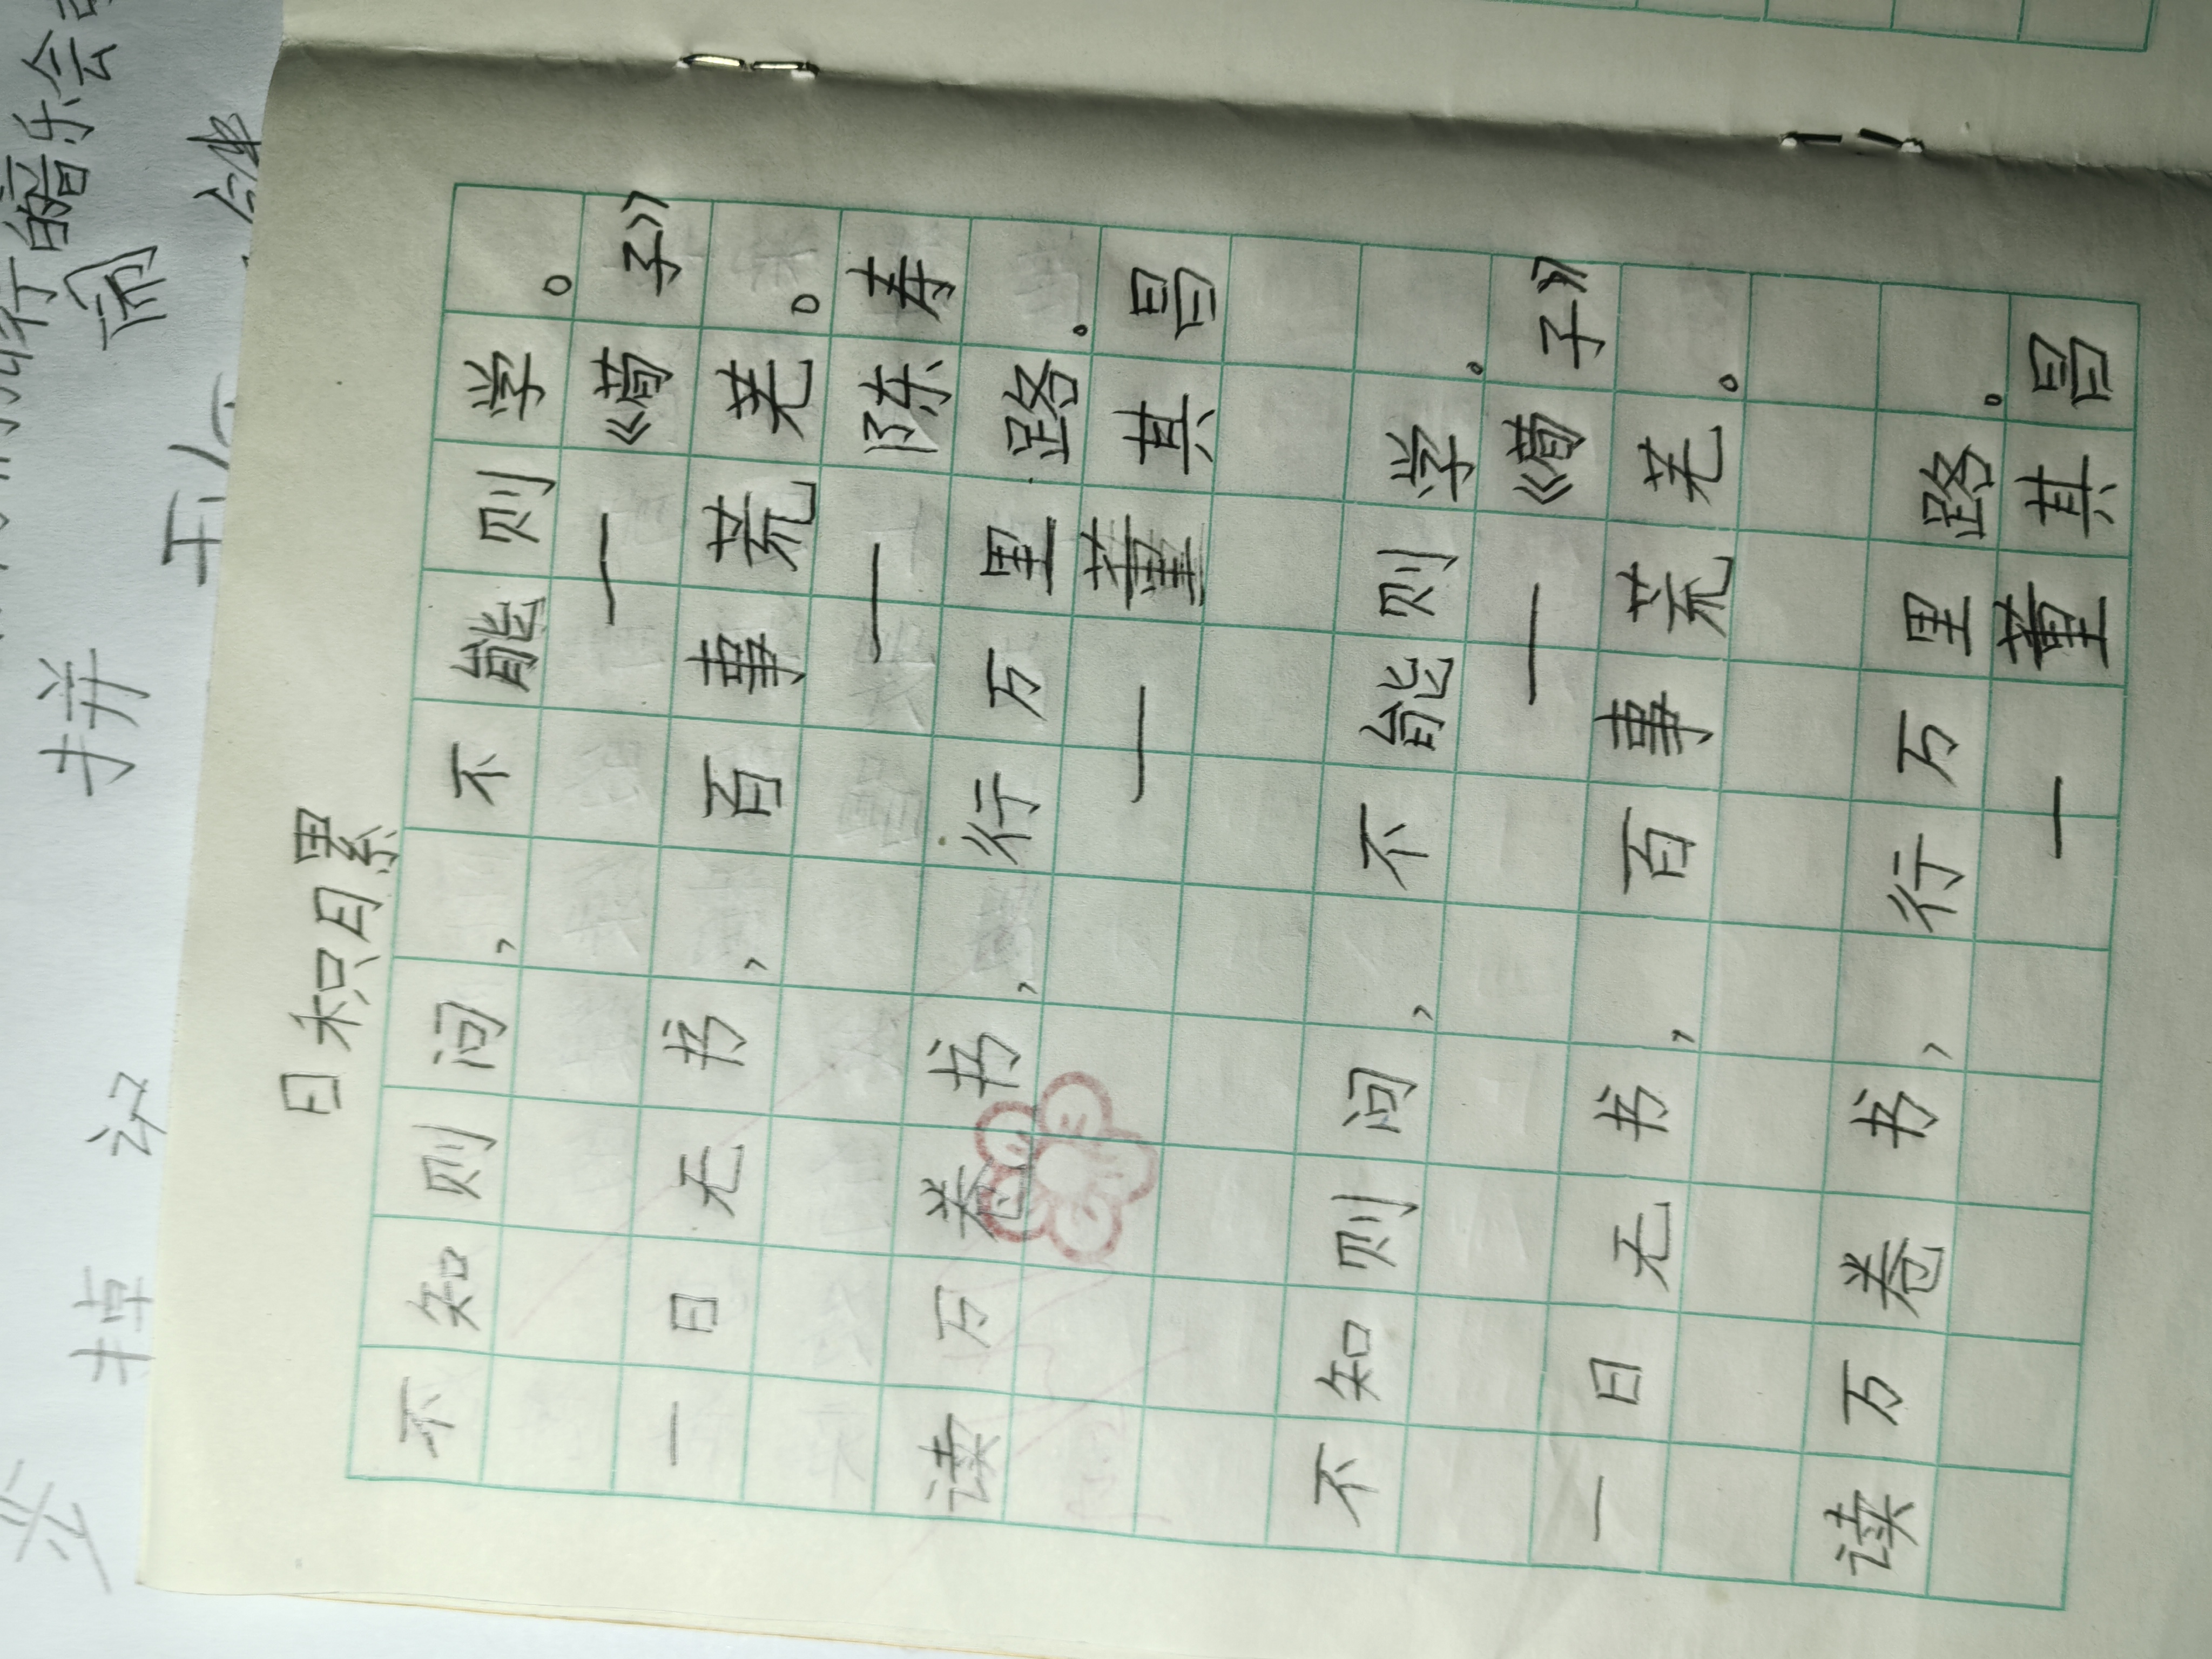 日积月累
不知则问，不能则学。
——《荀子》
一日无书，百事荒芜。
——陈寿
读万卷书，行万里路。
——董其昌
不知则问，不能则学。
——《荀子》
一日无书，百事荒芜。
读万卷书，行万里路。
——董其昌
的音乐会
闹
拼